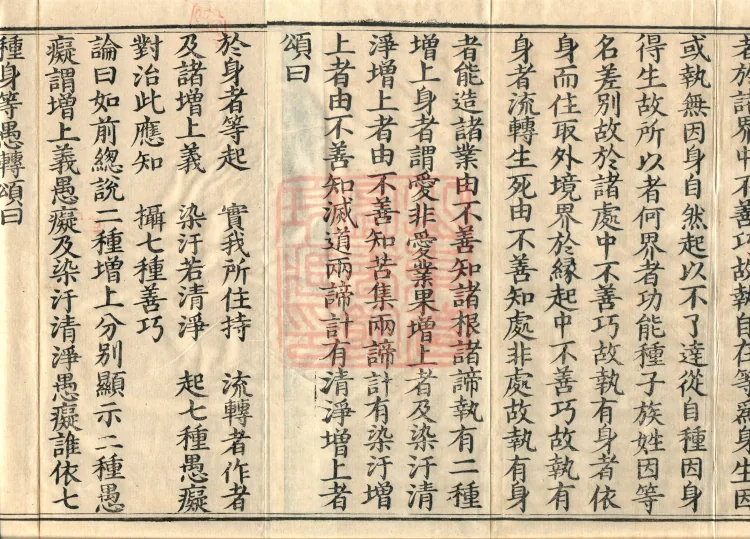 者於諸界中不善巧故執自在等為身生因
或執無因身自然起以不了達從自種因身
得生故所以者何界者功能種子族姓因等
名差別故於諸處中不善巧故執有身者依
身而住取外境界於緣起中不善巧故執有
身者流轉生死由不善知處非處故執有身
者能造諸業由不善知諸根諸諦執有二種
增上身者謂愛非愛業果增上者及染汙清
淨增上者由不善知苦集兩諦計有染汙增
上者由不善知滅道兩諦計有清淨增上者
頌曰
於身者等起 實我所住持 流轉者作者
及諸增上義 染汙若清淨 起七種愚癡
對治此應知 攝七種善巧
論曰如前總說二種增上分別顯示二種愚
癡謂增上義愚癡及染汙清淨愚癡誰依七
種身等愚轉頌曰